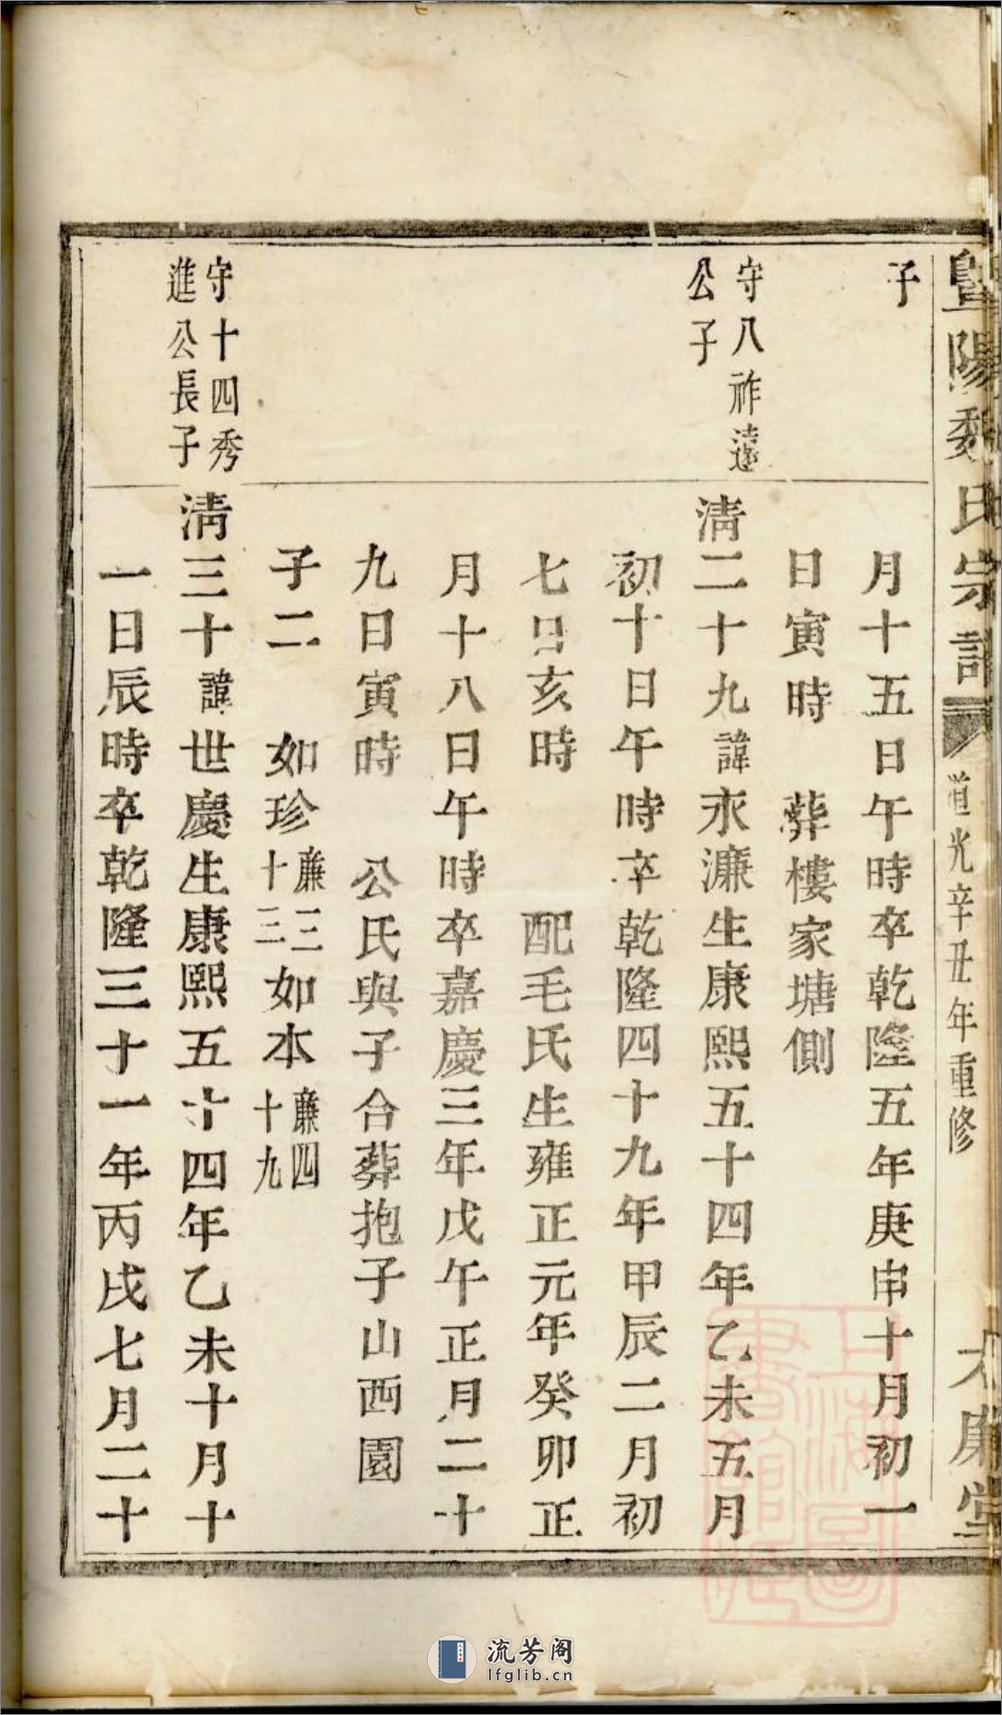 暨陽魏氏宗譜
道光辛丑年重修
大廉堂
子
月十五日午時卒乾隆五年庚申十月初一
日寅時 葬樓家塘側
守八祚遠
公子
清二十九諱永濂生康熙五十四年乙未五月
初十日午時卒乾隆四十九年甲辰二月初
七日亥時 配毛氏生雍正元年癸卯正
月十八日午時卒嘉慶三年戊午正月二十
九日寅時 公氏與子合葬抱子山西園
子二 如珍廉三十三如本廉四十九
守十四秀
進公長子
清三十諱世慶生康熙五十四年乙未十月十
一日辰時卒乾隆三十一年丙戌七月二十
上海圖書館藏
流芳阁
lfglib.cn